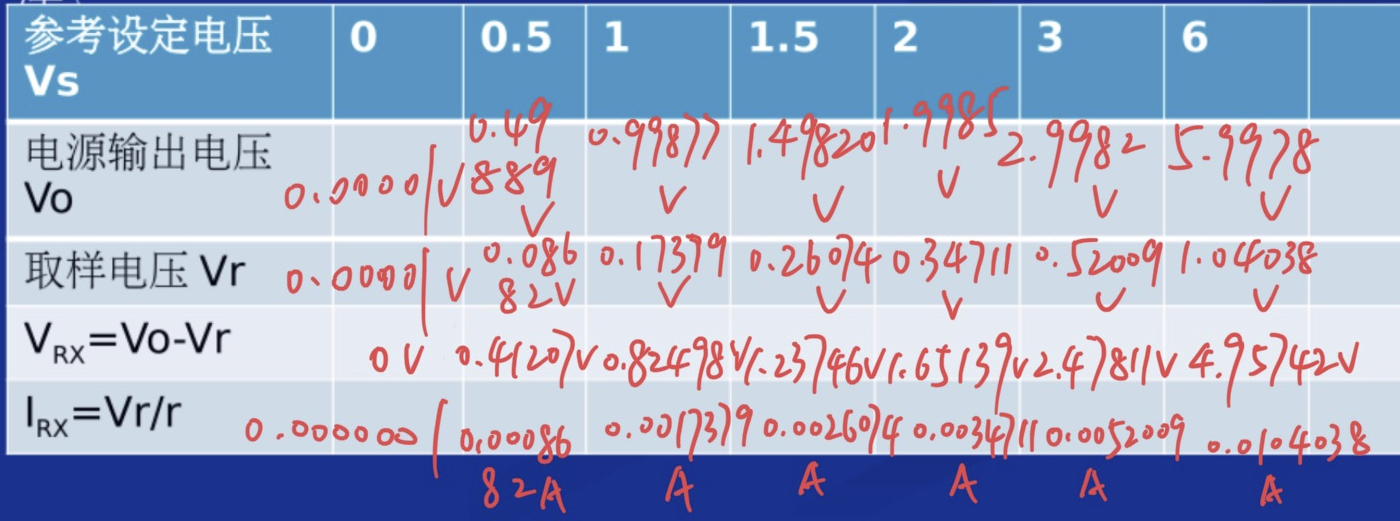 参考设定电压 Vs 0 0.5 1 1.5 2 3 6
电源输出电压 Vo 0.00001V 0.49889V 0.99877V 1.49820V 1.9985V 2.9982V 5.9978V
取样电压 Vr 0.00001V 0.08682V 0.17379V 0.26074V 0.34711V 0.52009V 1.04038V
VRX=Vo-Vr 0V 0.41207V 0.82498V 1.23746V 1.65139V 2.47811V 4.95742V
IRX=Vr/r 0.0000001 0.0008682A 0.0017379A 0.0026074A 0.0034711A 0.0052009A 0.0104038A